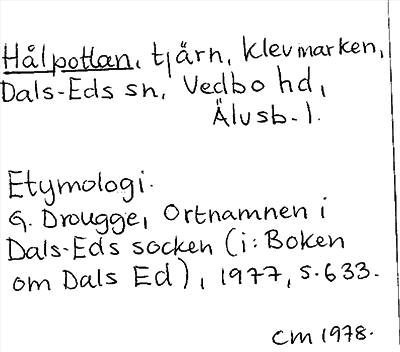 Hålpottan, tjärn, Klevmarken,
Dals-Eds sn, Vedbo hd,
Älvsb. l.
Etymologi.
G. Drougge, Ortnamnen i
Dals-Eds socken (i: Boken
om Dals Ed), 1977, s. 633.
CM 1978.